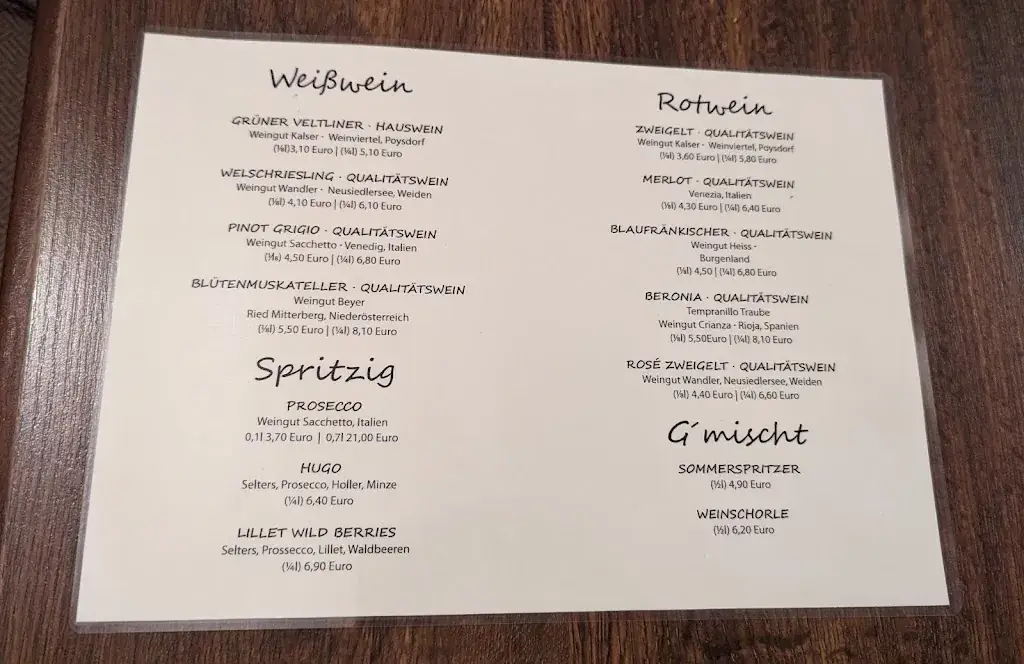 Weißwein
GRÜNER VELTLINER · HAUSWEIN
Weingut Kalser - Weinviertel, Poysdorf
(⅛l)3,10 Euro | (¼l) 5,10 Euro
WELSCHRIESLING · QUALITÄTSWEIN
Weingut Wandler - Neusiedlersee, Weiden
(⅛l) 4,10 Euro | (¼l) 6,10 Euro
PINOT GRIGIO · QUALITÄTSWEIN
Weingut Sacchetto - Venedig, Italien
(⅛l) 4,50 Euro | (¼l) 6,80 Euro
BLÜTENMUSKATELLER · QUALITÄTSWEIN
Weingut Beyer
Ried Mitterberg, Niederösterreich
(⅛l) 5,50 Euro | (¼l) 8,10 Euro
Spritzig
PROSECCO
Weingut Sacchetto, Italien
0,1l 3,70 Euro | 0,7l 21,00 Euro
HUGO
Selters, Prosecco, Holler, Minze
(¼l) 6,40 Euro
LILLET WILD BERRIES
Selters, Prossecco, Lillet, Waldbeeren
(¼l) 6,90 Euro
Rotwein
ZWEIGELT · QUALITÄTSWEIN
Weingut Kalser - Weinviertel, Poysdorf
(⅛l) 3,60 Euro | (¼l) 5,80 Euro
MERLOT · QUALITÄTSWEIN
Venezia, Italien
(⅛l) 4,30 Euro | (¼l) 6,40 Euro
BLAUFRÄNKISCHER · QUALITÄTSWEIN
Weingut Heiss -
Burgenland
(⅛l) 4,50 | (¼l) 6,80 Euro
BERONIA · QUALITÄTSWEIN
Tempranillo Traube
Weingut Crianza - Rioja, Spanien
(⅛l) 5,50Euro | (¼l) 8,10 Euro
ROSÉ ZWEIGELT · QUALITÄTSWEIN
Weingut Wandler, Neusiedlersee, Weiden
(⅛l) 4,40 Euro | (¼l) 6,60 Euro
G´mischt
SOMMERSPRITZER
(½l) 4,90 Euro
WEINSCHORLE
(½l) 6,20 Euro